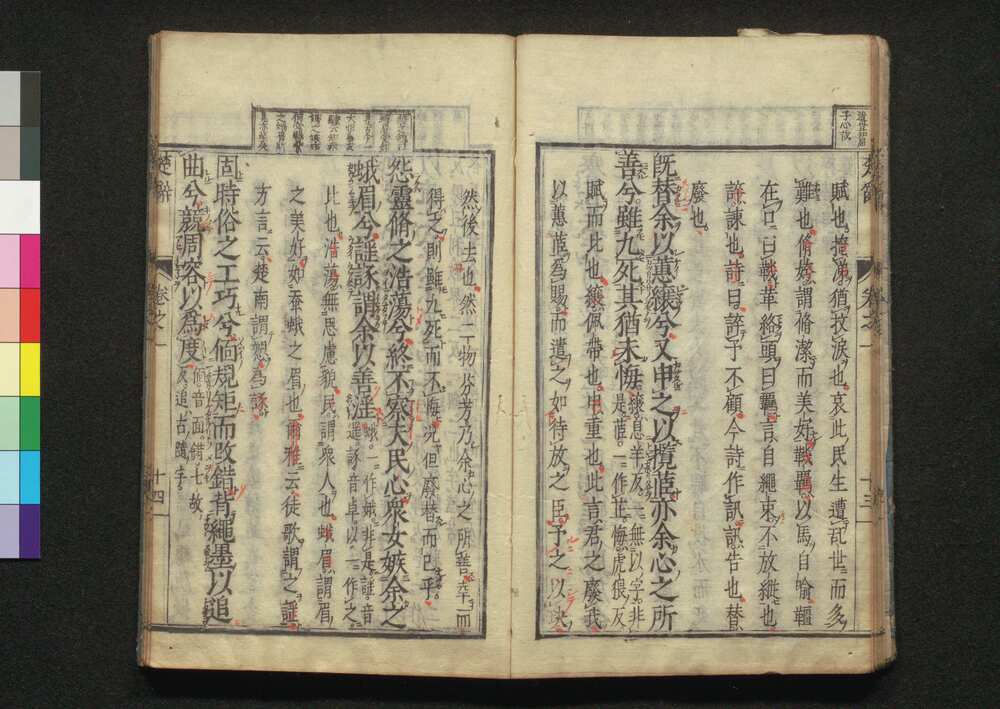 賦也掩涕猶抆淚也哀此民生遭亂世而多
難也脩姱謂脩潔而美好鞿羈以馬自喻韁
在口曰鞿革絡頭曰羈言自繩束不放縱也
誶諫也詩曰誶予不顧今詩作訊訊告也替
廢也
旣替余以蕙纕兮又申之以攬茝亦余心之所
善兮雖九死其猶未悔纕息羊反一無以字非是茝一作芷悔虎偎反
賦而比也纕佩帶也申重也此言君之廢我
以蕙茝爲賜而遣之如待放之臣予之以玦
卷之一
十三
然後去也然二物芬芳乃余心之所善幸而
得之則雖九死而不悔况但廢替而已乎
怨靈脩之浩蕩兮終不察夫民心衆女嫉余之
蛾眉兮謠諑謂余以善淫蛾一作娥非是謠音遥諑音卓以一作之
比也浩蕩無思慮貌民謂衆人也蛾眉謂眉
之美好如蚕蛾之眉也爾雅云徒歌謂之謠
方言云楚南謂愬爲諑
固時俗之工巧兮偭規矩而改錯背繩墨以追
曲兮競周容以爲度偭音面錯七故反追古隨字
楚辭
卷之一
十四